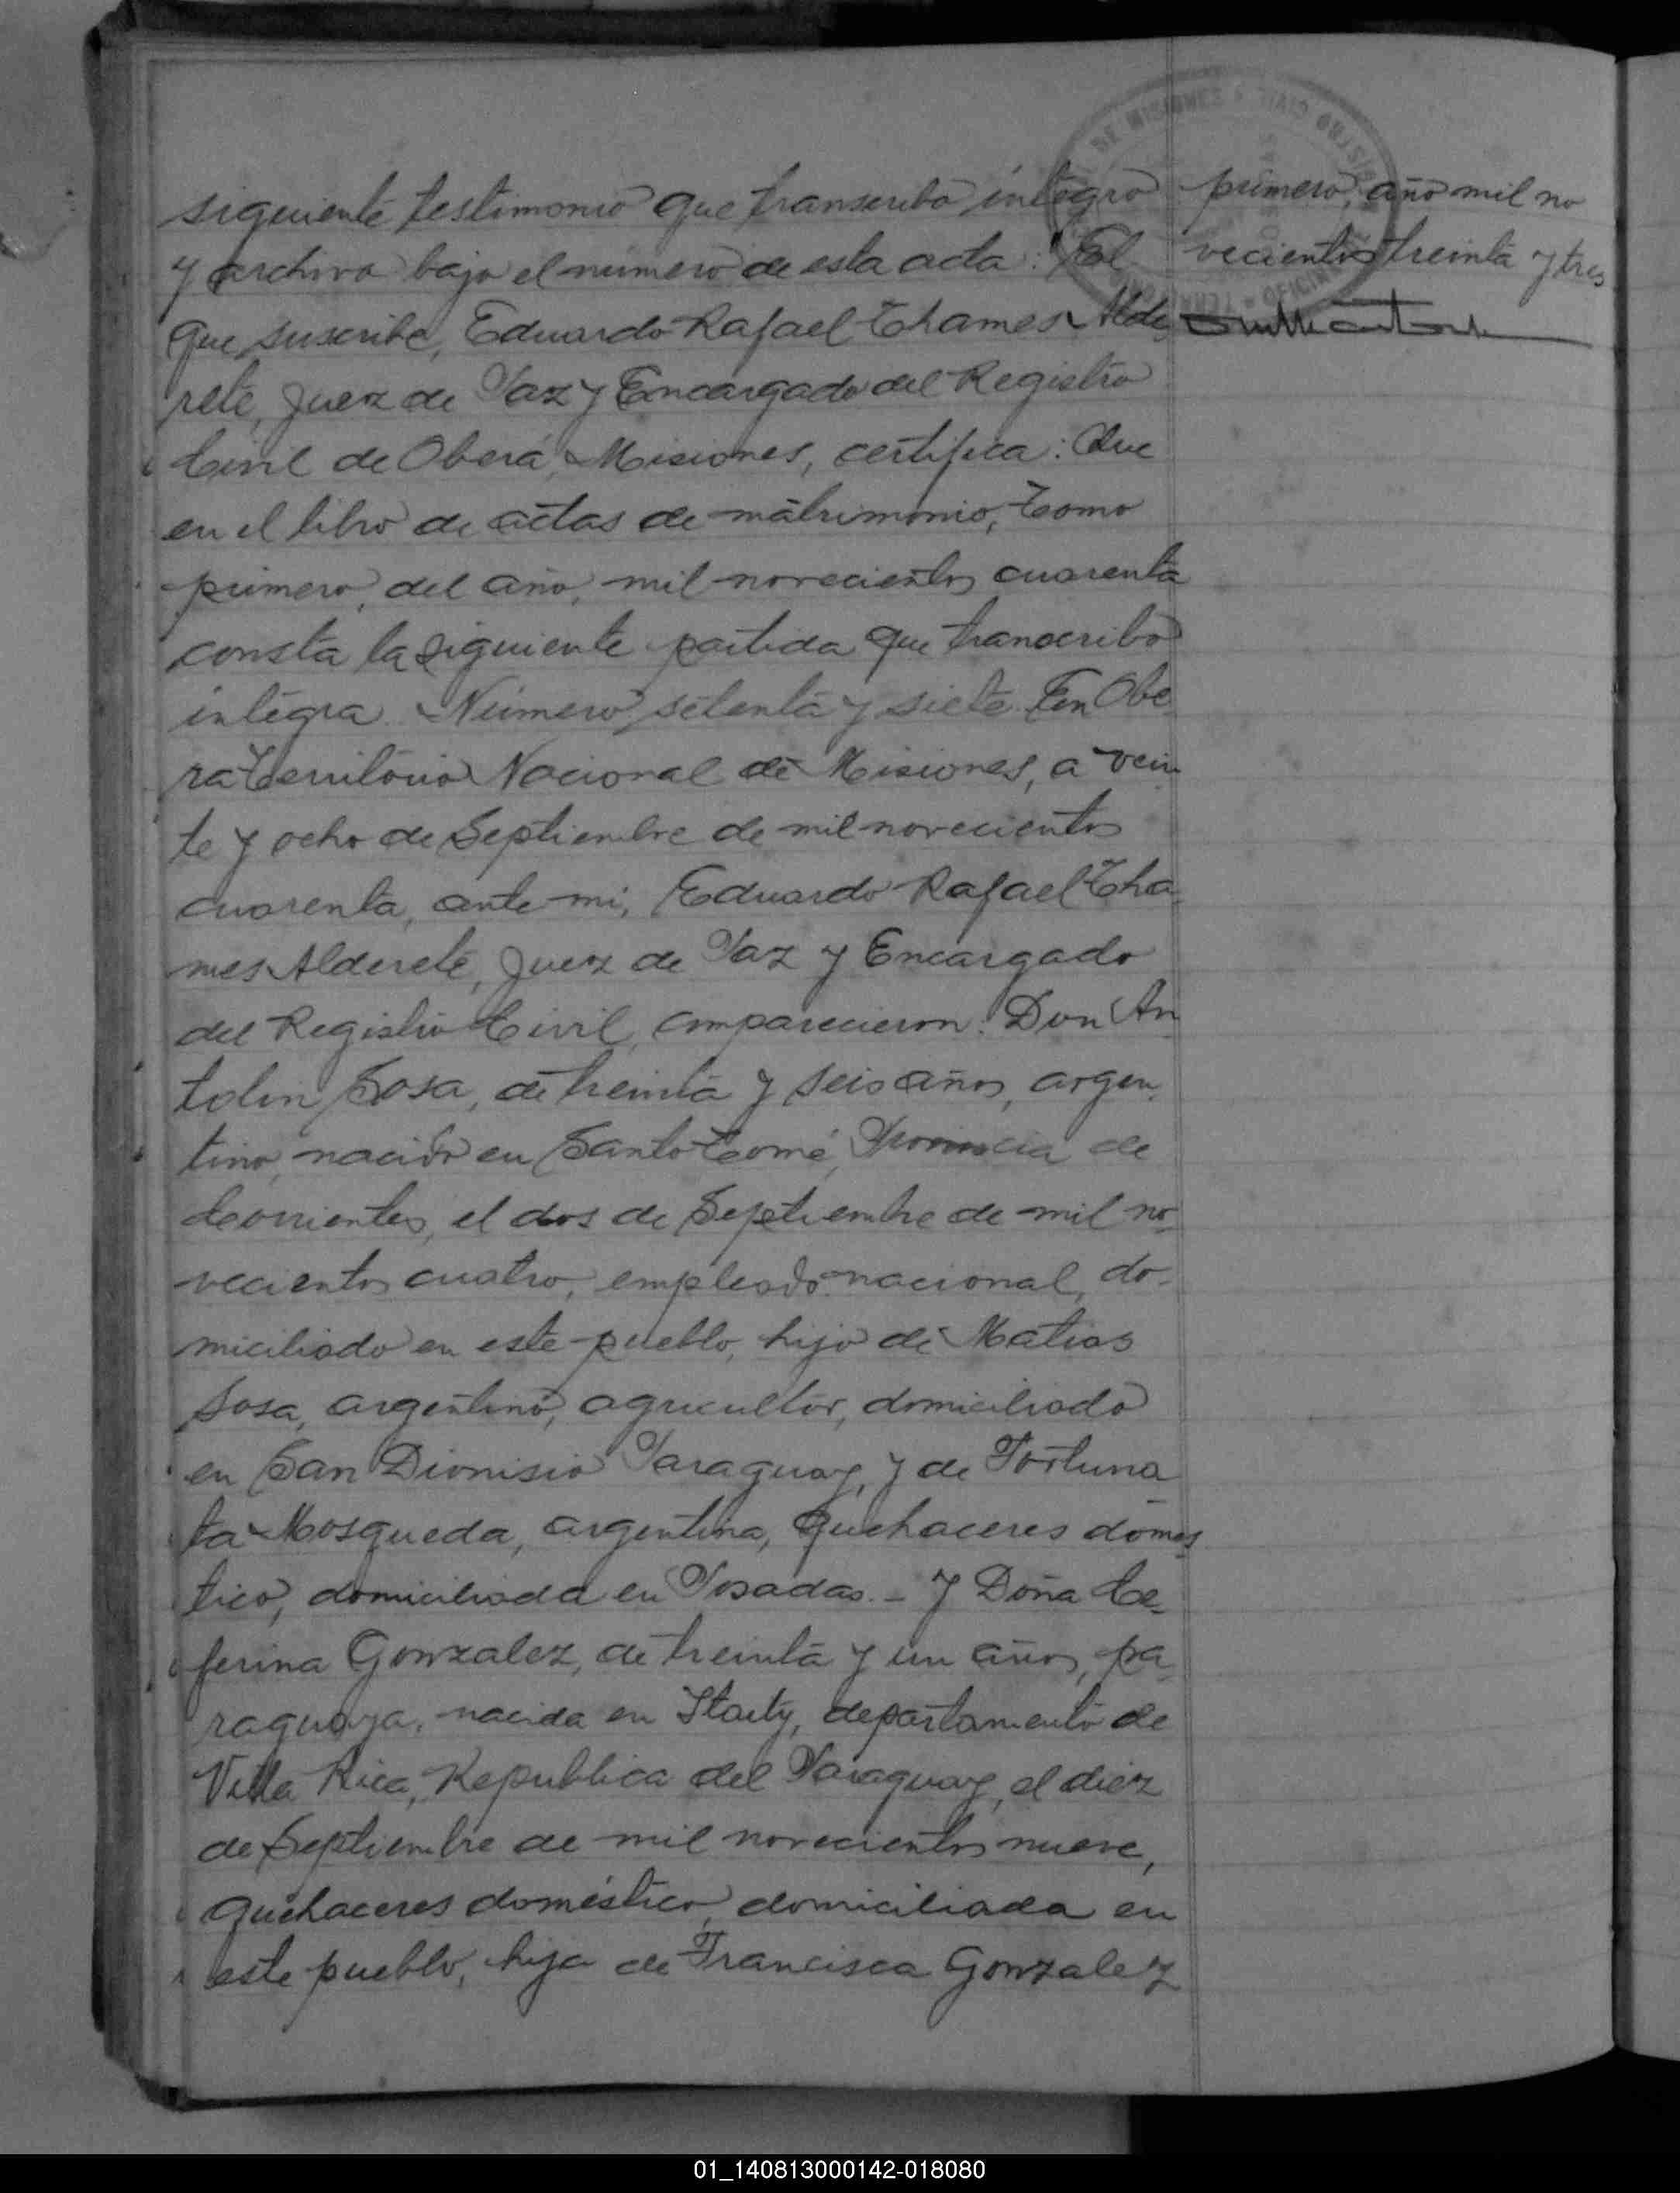 siguiente testimonio que transcribo íntegro
y archivo bajo el número de esta acta: "El
que suscribe, Eduardo Rafael Thames Alde
rete, Juez de Paz y Encargado del Registro
Civil de Oberá, Misiones, certifica: Que
en el libro de actas de matrimonio, tomo
primero, del año, mil novecientos cuarenta
consta la siguiente partida que transcribo
íntegra. Número setenta y siete. En Obe
ra Territorio Nacional de Misiones, a vein
te y ocho de Septiembre de mil novecientos
cuarenta, ante mi, Eduardo Rafael Tha
mes Alderete, Juez de Paz y Encargado
del Registro Civil, comparecieron: Don An
tolin Sosa, de treinta y seis años, argen
tino, nacido en Santo Tomé, Provincia de
Corrientes, el dos de Septiembre de mil no
vecientos cuatro, empleado nacional, do-
miciliado en este pueblo, hijo de Matias
Sosa, argentino, agricultor, domiciliado
en San Dionisio Paraguay, y de Fortuna
ta Mosqueda, argentina, quehaceres domes
tico, domiciliada en Posadas. - Y Doña Ce-
ferina Gonzalez, de treinta y un años, pa
raguaya, nacida en Itaity, departamento de
Villa Rica, Republica del Paraguay, el diez
de Septiembre de mil novecientos nueve,
quehaceres doméstico, domiciliada en
este pueblo, hija de Francisca Gonzalez
primero, año mil no
vecientos treinta y tres
DE MISIONES
OFICINA
01_140813000142-018080